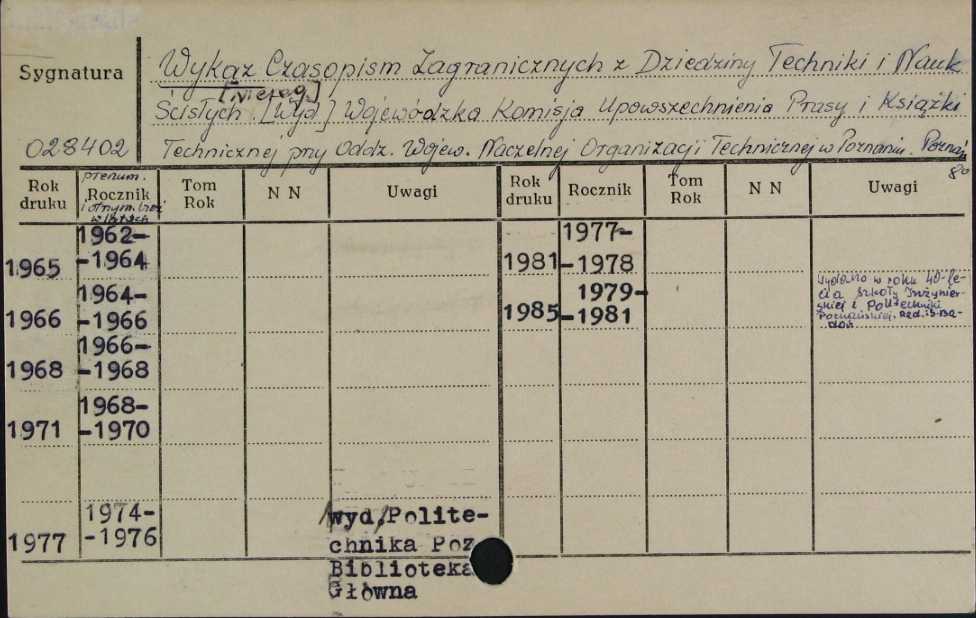 Sygnatura
Wykaz Czasopism Zagranicznych z Dziedziny Techniki i Nauk
[Niereg]
Ścisłych. [Wyd] Wojewódzka Komisja Upowszechnienia Prasy i Książki
028402
Technicznej przy Oddz. Wojew. Naczelnej Organizacji Technicznej w Poznaniu. Poznań
8°
Rok druku
prenum.
Rocznik
w latach
Tom Rok
N N
Uwagi
Rok druku
Rocznik
Tom Rok
N N
Uwagi
1965 1962-
-1964
1966 1964-
-1966
1968 1966-
-1968
1971 1968-
-1970
1977 1974-
-1976
/wyd/Polite-
chnika Poz
Biblioteka
Główna
1981 1977-
-1978
1985 1979-
-1981
Wydano w roku 40-le-
cia Szkoły Inżynier-
skiej i Politechniki
Poznańskiej. Red.